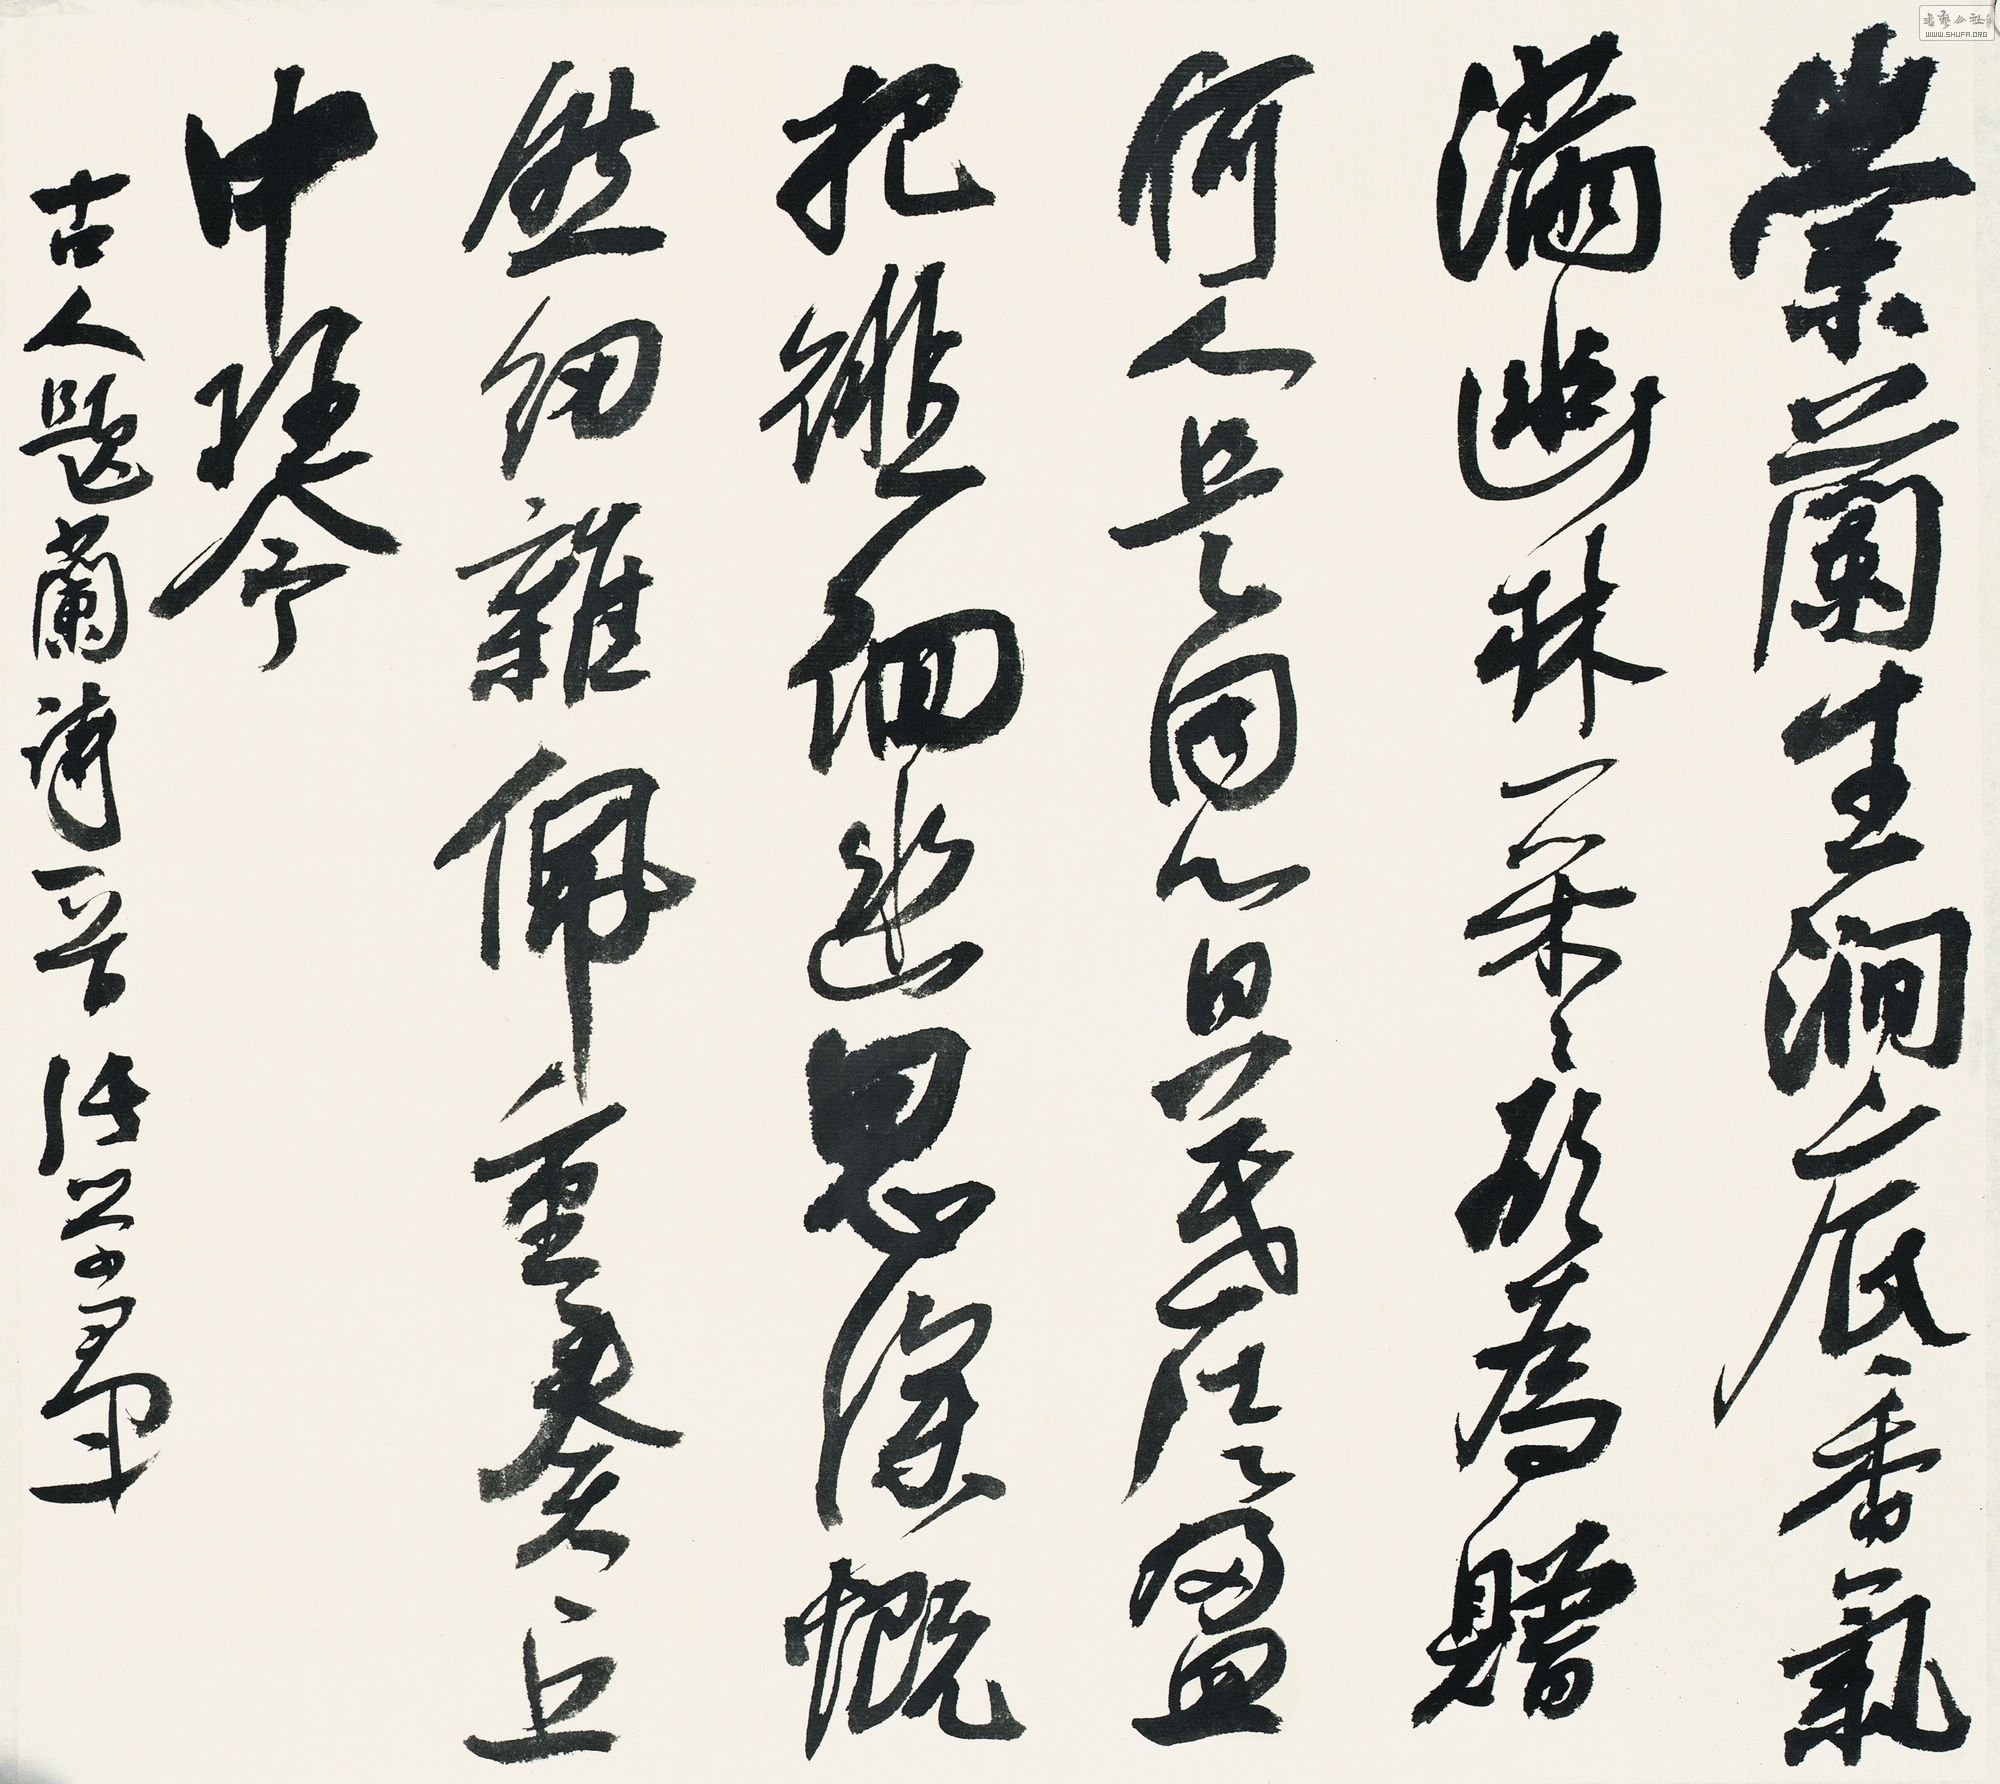 書藝公社
WWW.SHUFA.ORG
崇蘭生澗底香氣
滿幽林采々欲為贈
何人是同心日暮徒盈
把徘徊幽思深慨
然紉雜佩重奏丘
中琴
古人題蘭詩一首